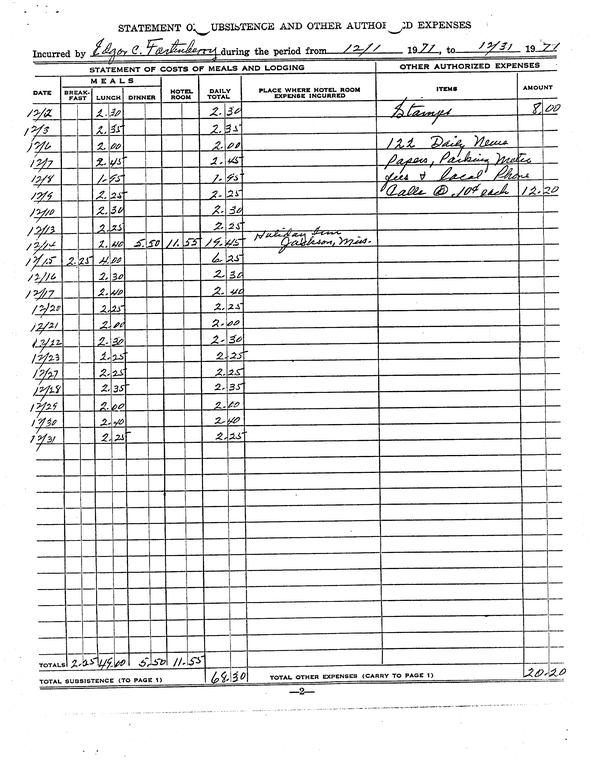 STATEMENT O UBSISTENCE AND OTHER AUTHO ED EXPENSES
Incurred by Edgar C. Fortenberry during the period from 12/1 1971, to 12/31 1971
STATEMENT OF COSTS OF MEALS AND LODGING OTHER AUTHORIZED EXPENSES
MEALS
DATE BREAK-FAST LUNCH DINNER HOTEL ROOM DAILY TOTAL PLACE WHERE HOTEL ROOM EXPENSE INCURRED ITEMS AMOUNT
12/2 2.30 2.30 Stamps 8.00
12/3 2.35 2.35
12/6 2.00 2.00 122 Daily News
12/7 2.45 2.45 Papers, Parking Meter
12/8 1.95 1.95 fees & local Phone
12/9 2.25 2.25 Calls @ .10¢ each 12.20
12/10 2.30 2.30
12/13 2.25 2.25
12/14 2.40 5.50 11.55 19.45 Holiday Inn Jackson, Miss.
12/15 2.25 4.00 6.25
12/16 2.30 2.30
12/17 2.40 2.40
12/20 2.25 2.25
12/21 2.00 2.00
12/22 2.30 2.30
12/23 2.25 2.25
12/27 2.25 2.25
12/28 2.35 2.35
12/29 2.00 2.00
12/30 2.40 2.40
12/31 2.25 2.25
TOTALS 2.25 49.00 5.50 11.55
TOTAL SUBSISTENCE (TO PAGE 1) 68.30 TOTAL OTHER EXPENSES (CARRY TO PAGE 1) 20.20
—2—